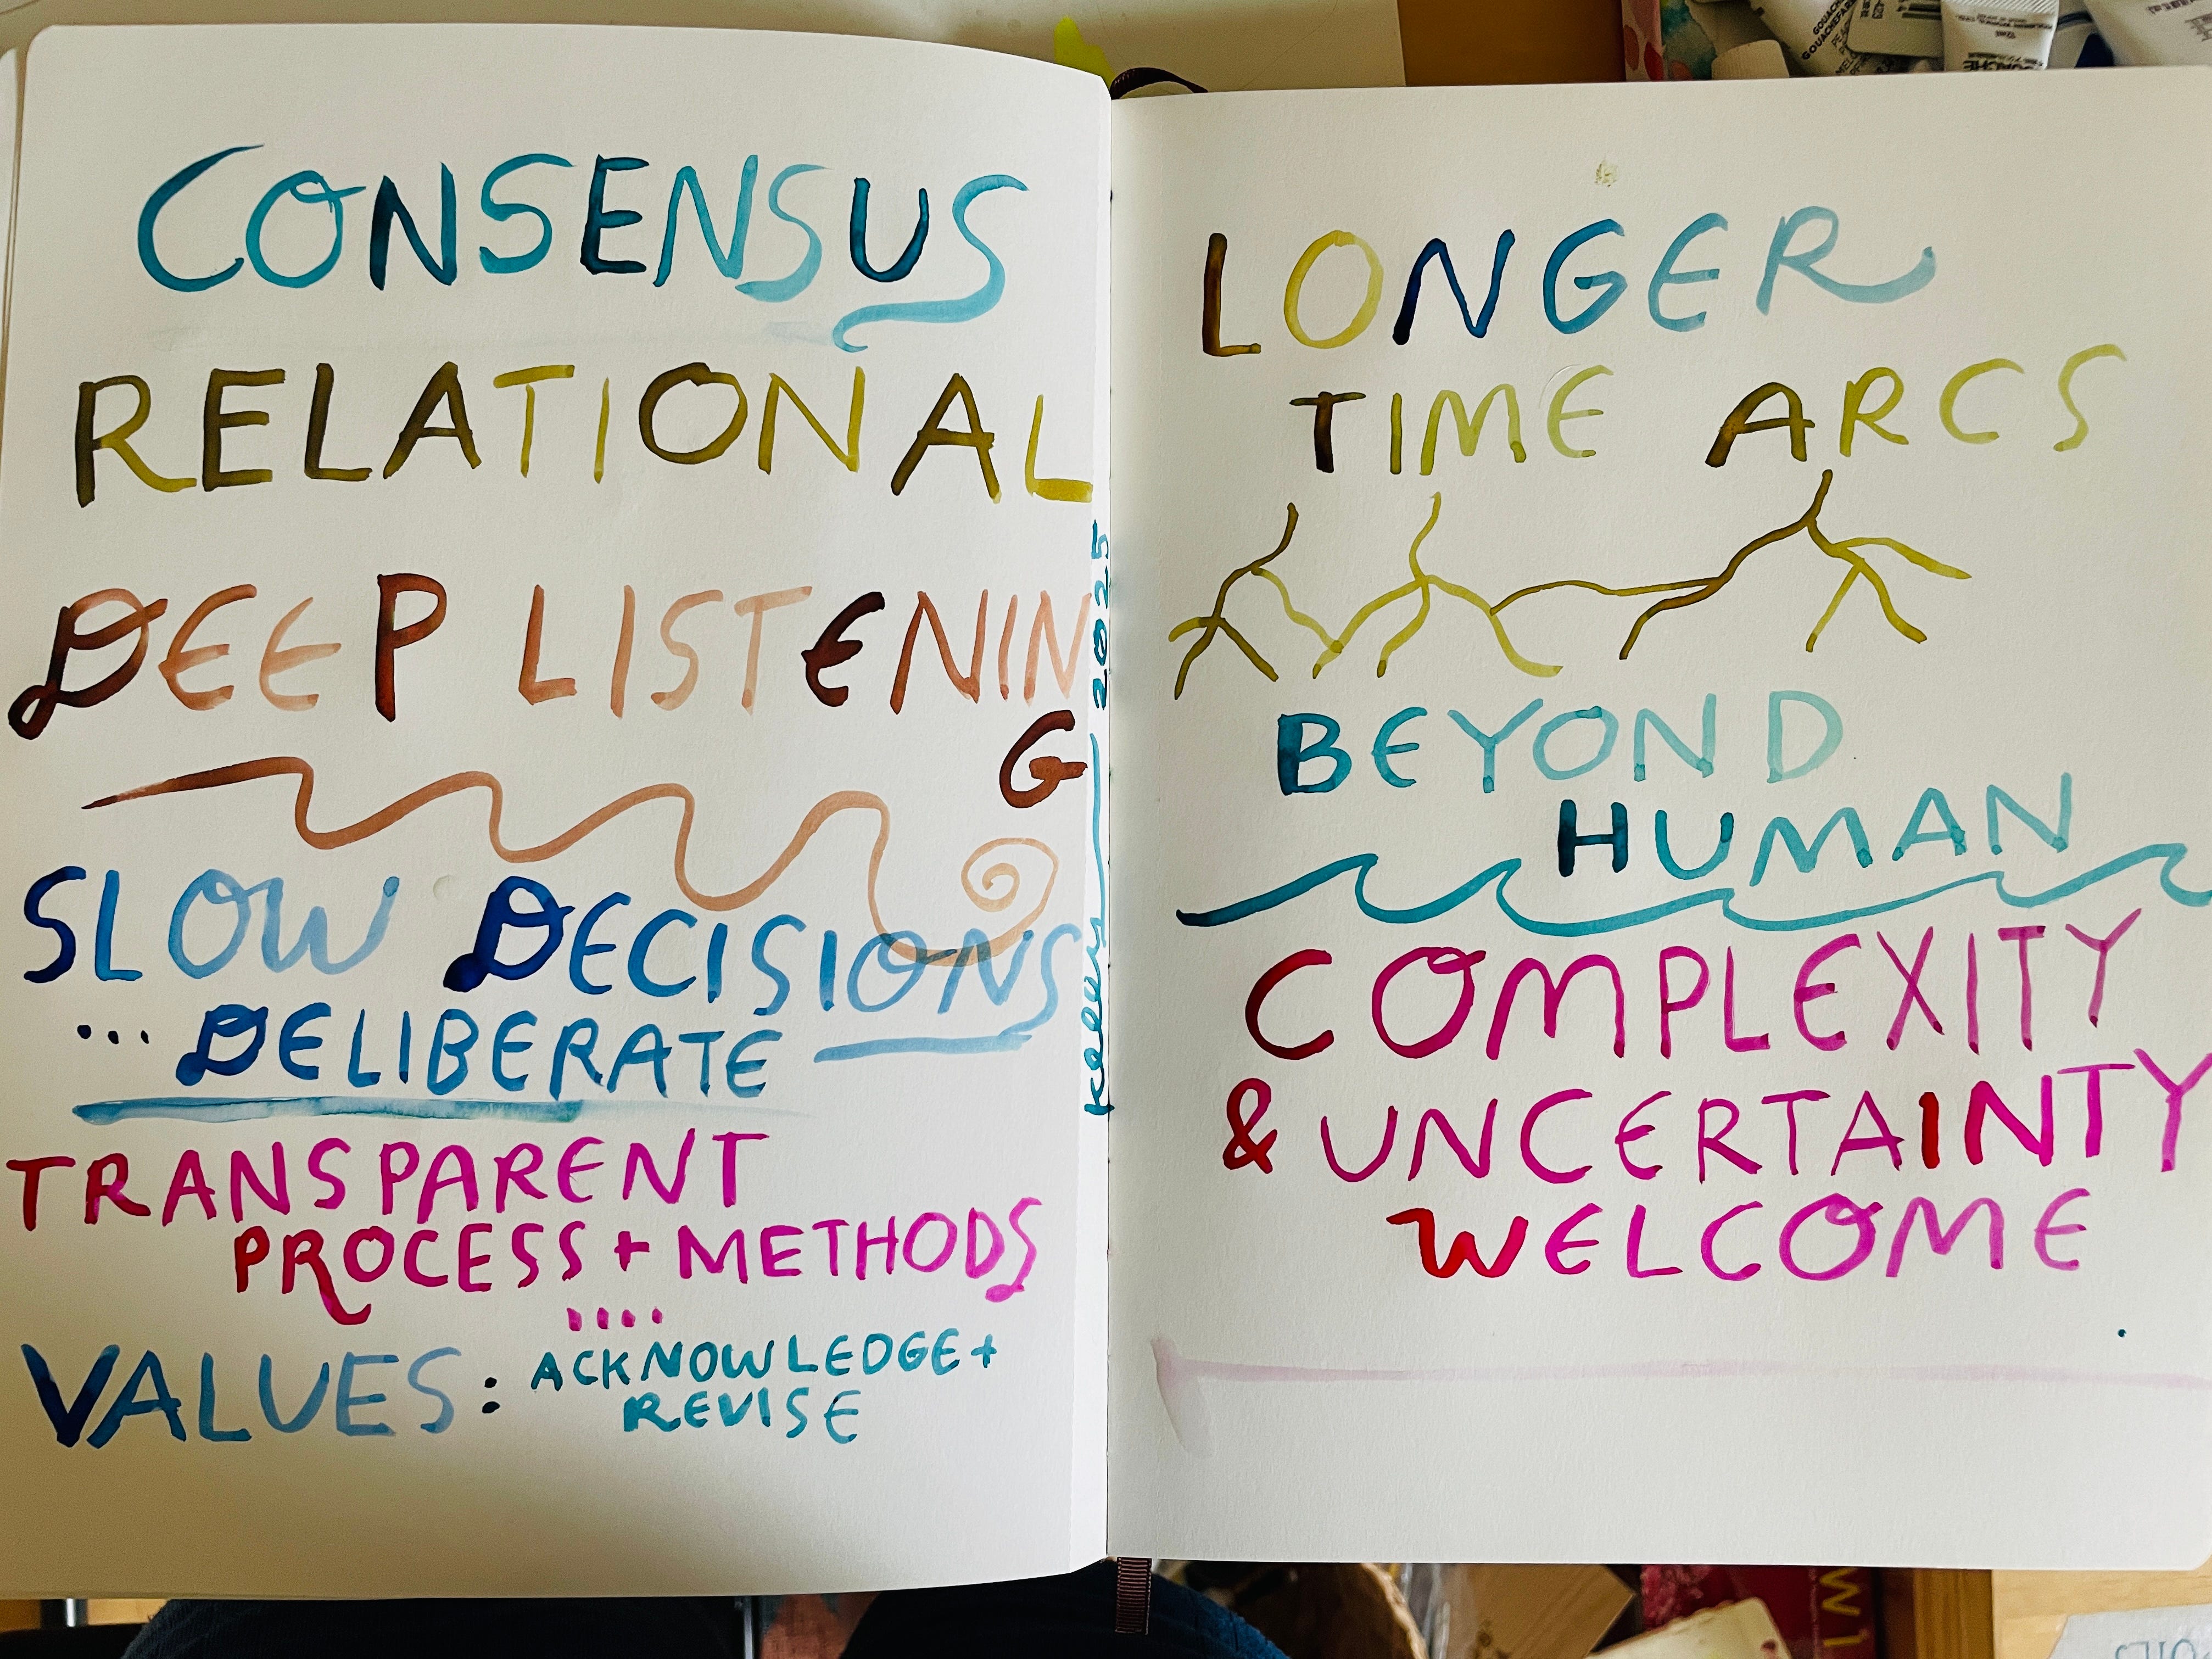 CONSENSUS
RELATIONAL
DEEP LISTENIN
G
SLOW DECISIONS
... DELIBERATE
TRANSPARENT
PROCESS + METHODS
....
VALUES: ACKNOWLEDGE +
REVISE
2025
LONGER
TIME ARCS
BEYOND
HUMAN
COMPLEXITY
& UNCERTAINTY
WELCOME